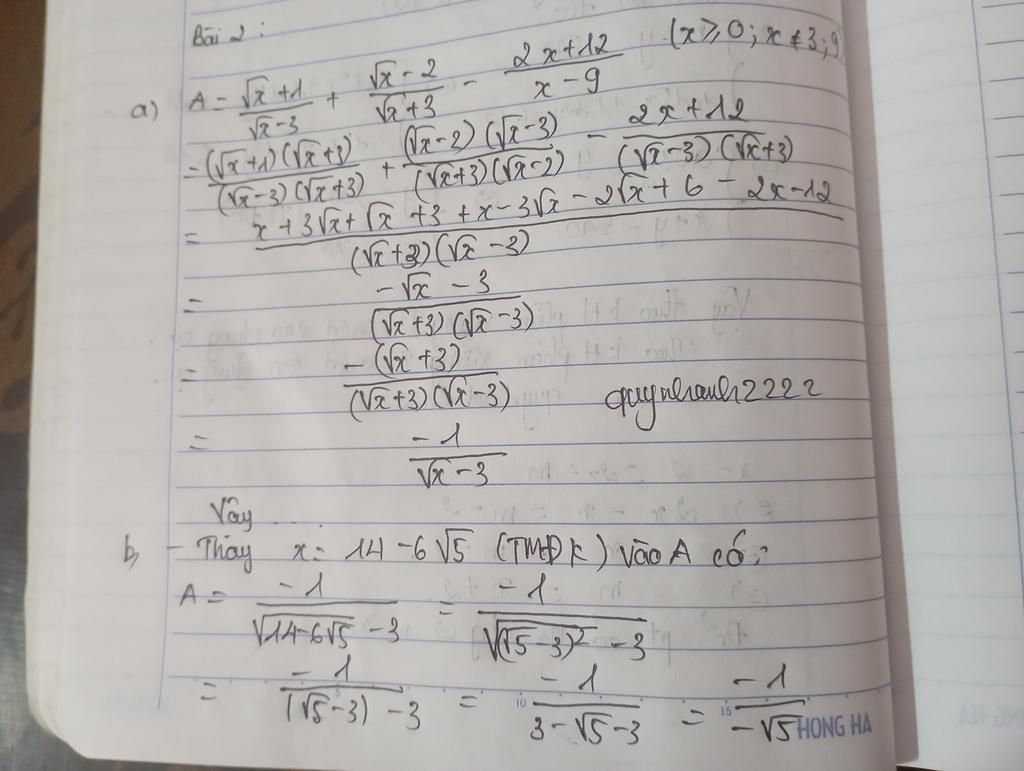 Bài 2 :
a) A = (√x + 1)/(√x - 3) + (√x - 2)/(√x + 3) - (2x + 12)/(x - 9) (x ≥ 0 ; x ≠ 3 ; 9
= (√x + 1)(√x + 3)/(√x - 3)(√x + 3) + (√x - 2)(√x - 3)/(√x + 3)(√x - 2) - (2x + 12)/(√x - 3)(√x + 3)
= (x + 3√x + √x + 3 + x - 3√x - 2√x + 6 - 2x - 12)/(√x + 3)(√x - 3)
= (-√x - 3)/(√x + 3)(√x - 3)
= -(√x + 3)/(√x + 3)(√x - 3) quynhanh2222
= -1/(√x - 3)
Vây ...
b, - Thay x = 14 - 6√5 (TMĐK) vào A có :
A = -1/(√(14 - 6√5) - 3) = -1/(√((√5 - 3)²) - 3)
= -1/((√5 - 3) - 3) = -1/(3 - √5 - 3) = -1/(-√5)
HONG HA